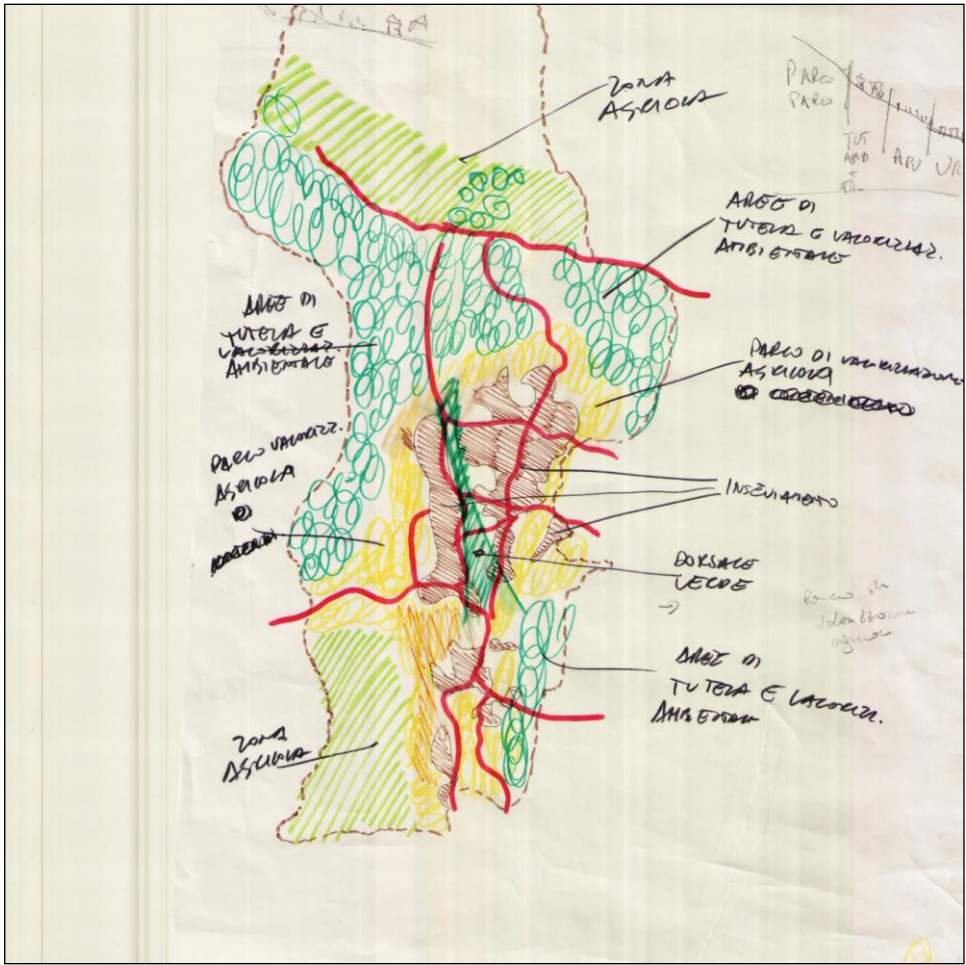 ZONA
AGRICOLA
PARCO
PARCO
TUT
AMB
APV
AREE DI
TUTELA E VALORIZZAZ.
AMBIENTALE
AREE DI
TUTELA E
VALORIZZAZ
AMBIENTALE
PARCO DI VALORIZZAZIONE
AGRICOLA
PARCO VALORIZZ.
AGRICOLA
INSEDIAMENTO
DORSALE
VERDE
AREE DI
TUTELA E VALORIZZ.
AMBIENTALE
ZONA
AGRICOLA